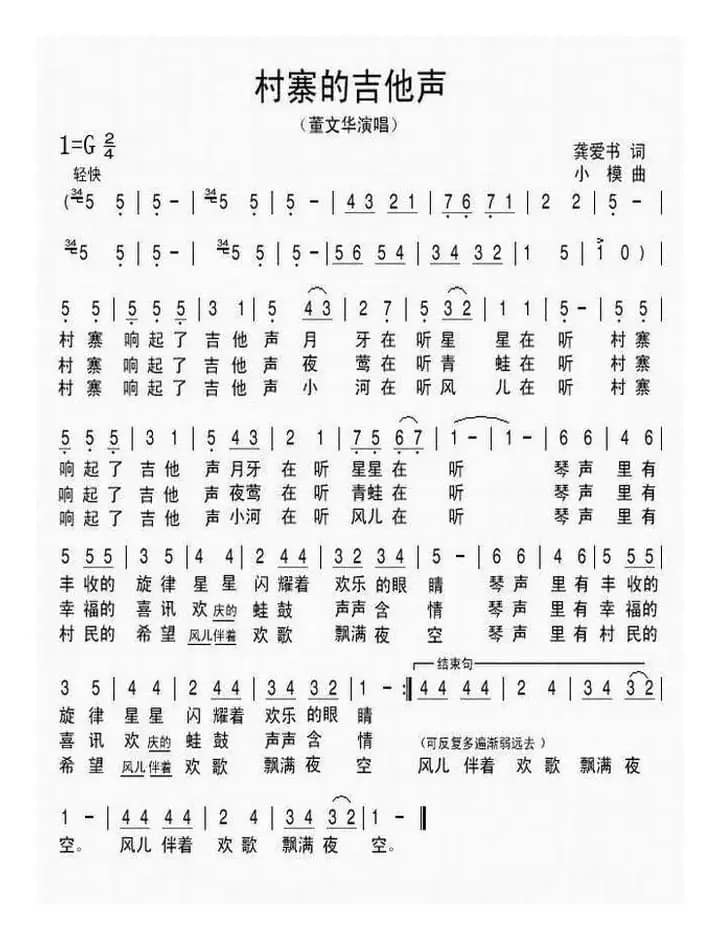 村寨的吉他声
（董文华演唱）
1=G 2/4
龚爱书 词
轻快
小 模 曲
( 34 5 5 | 5 - | 34 5 5 | 5 - | 43 21 | 76 71 | 2 2 | 5 - |
34 5 5 | 5 - | 34 5 5 | 5 - | 56 54 | 34 32 | 1 5 | 1 0 ) |
5 5 | 5 5 5 | 3 1 | 5 43 | 2 7 | 5 32 | 1 1 | 5 - | 5 5 |
村 寨 响 起 了 吉 他 声 月 牙 在 听 星 星 在 听 村 寨
村 寨 响 起 了 吉 他 声 夜 莺 在 听 青 蛙 在 听 村 寨
村 寨 响 起 了 吉 他 声 小 河 在 听 风 儿 在 听 村 寨
5 5 5 | 3 1 | 5 43 | 2 1 | 7 5 6 7 | 1 - | 1 - | 6 6 | 4 6 |
响 起 了 吉 他 声 月牙 在 听 星星 在 听 琴 声 里 有
响 起 了 吉 他 声 夜莺 在 听 青蛙 在 听 琴 声 里 有
响 起 了 吉 他 声 小河 在 听 风儿 在 听 琴 声 里 有
5 55 | 3 5 | 4 4 | 2 44 | 32 34 | 5 - | 6 6 | 4 6 | 5 55 |
丰 收的 旋 律 星 星 闪 耀着 欢乐 的眼 睛 琴 声 里 有 丰 收的
幸 福的 喜 讯 欢 庆的 蛙 鼓 声声 含 情 琴 声 里 有 幸 福的
村 民的 希 望 风儿伴着 欢 歌 飘满 夜 空 琴 声 里 有 村 民的
结束句
3 5 | 4 4 | 2 44 | 34 32 | 1 - :‖ 44 44 | 2 4 | 34 32 |
旋 律 星 星 闪 耀着 欢乐 的眼 睛
喜 讯 欢 庆的 蛙 鼓 声声 含 情 (可反复多遍渐弱远去)
希 望 风儿 伴着 欢 歌 飘满 夜 空 风儿 伴着 欢 歌 飘满 夜
1 - | 44 44 | 2 4 | 34 32 | 1 - ‖
空。 风儿 伴着 欢 歌 飘满 夜 空。